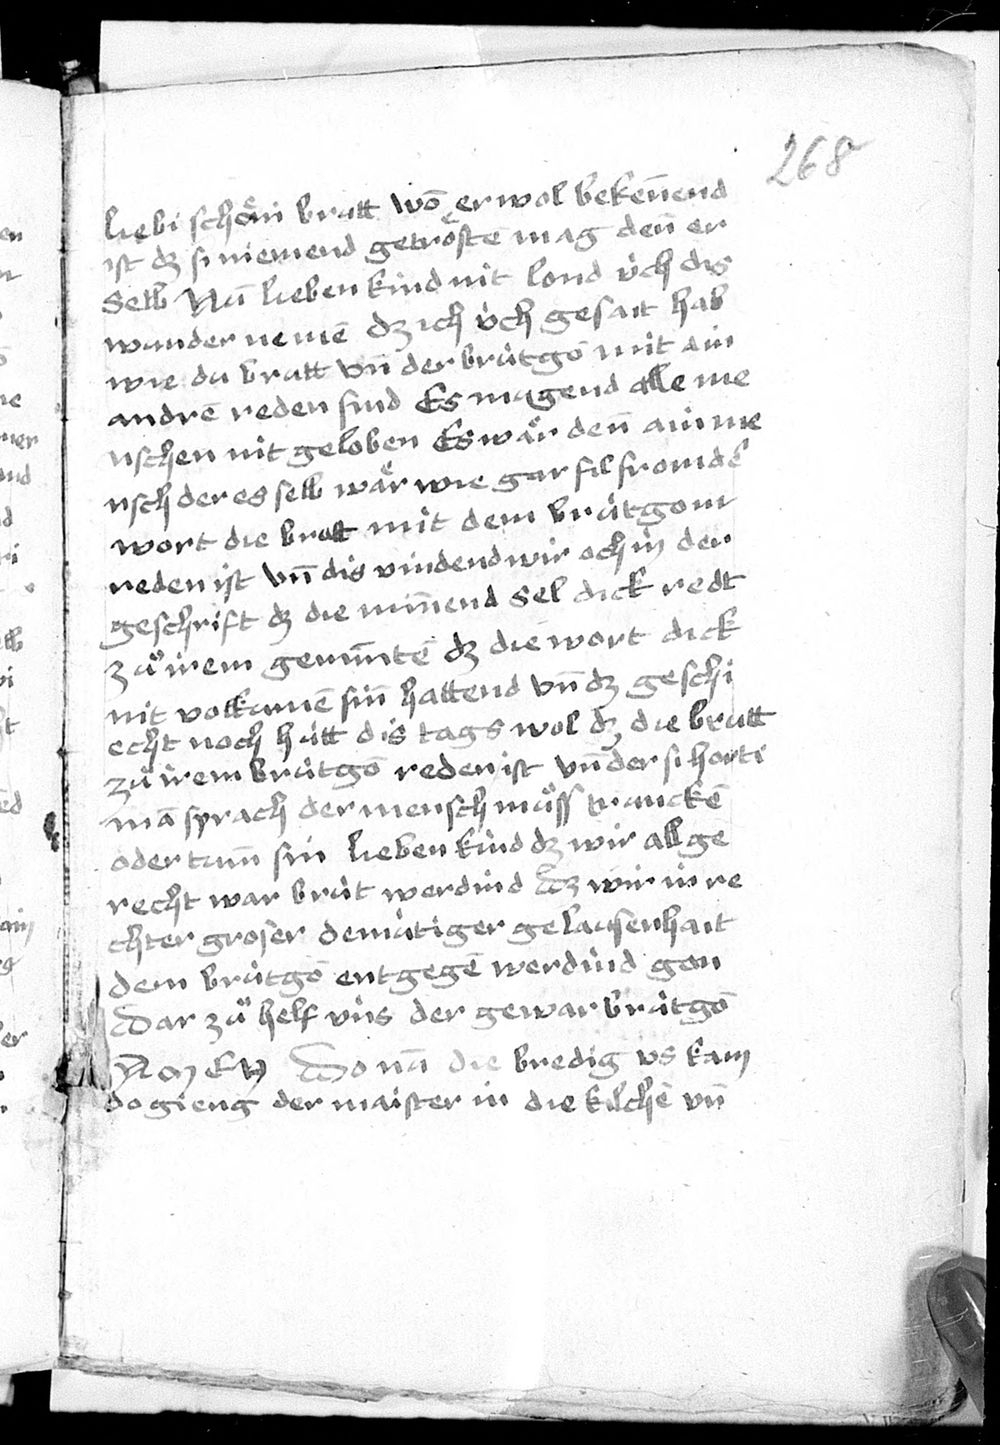 268
liebi schöni brutt wō er wol bekeñend
ist dʒ si niemend getröstē mag deñ er
Selb Nū lieben kind nit lond v̇ch dis
wunder nemē dʒ ich v̇ch gesait hab
wie du brutt vn̄ der brütgō mit ain
andrē reden sind Es mugend alle me
nschen nit geloben Es wär deñ ain me
nsch der es selb wär wie gar fil frömdē
wort die brutt mit dem brütgom
reden ist vn̄ dis vindend wir och in der
geschrift dʒ die miñend Sel dick redt
zů irem gemintē dʒ die wort dick
nit volkumē siñ hattend vn̄ dʒ geschi
echt noch hütt dis tags wol dʒ die brutt
zů irem brütgō reden ist vn̄ der si horti
mā sprach der mensch müss truncken
oder tum sin lieben kind dʒ wir all ge
recht war brüt werdind Dʒ wir in re
chter groser demütiger gelausenhait
dem brütgō entgegē werdind gon
Dar zů helf v̇ns der gewar brütgō
AmEN Do nū die bredig vs kam
do gieng der maister in die kilchē vn̄